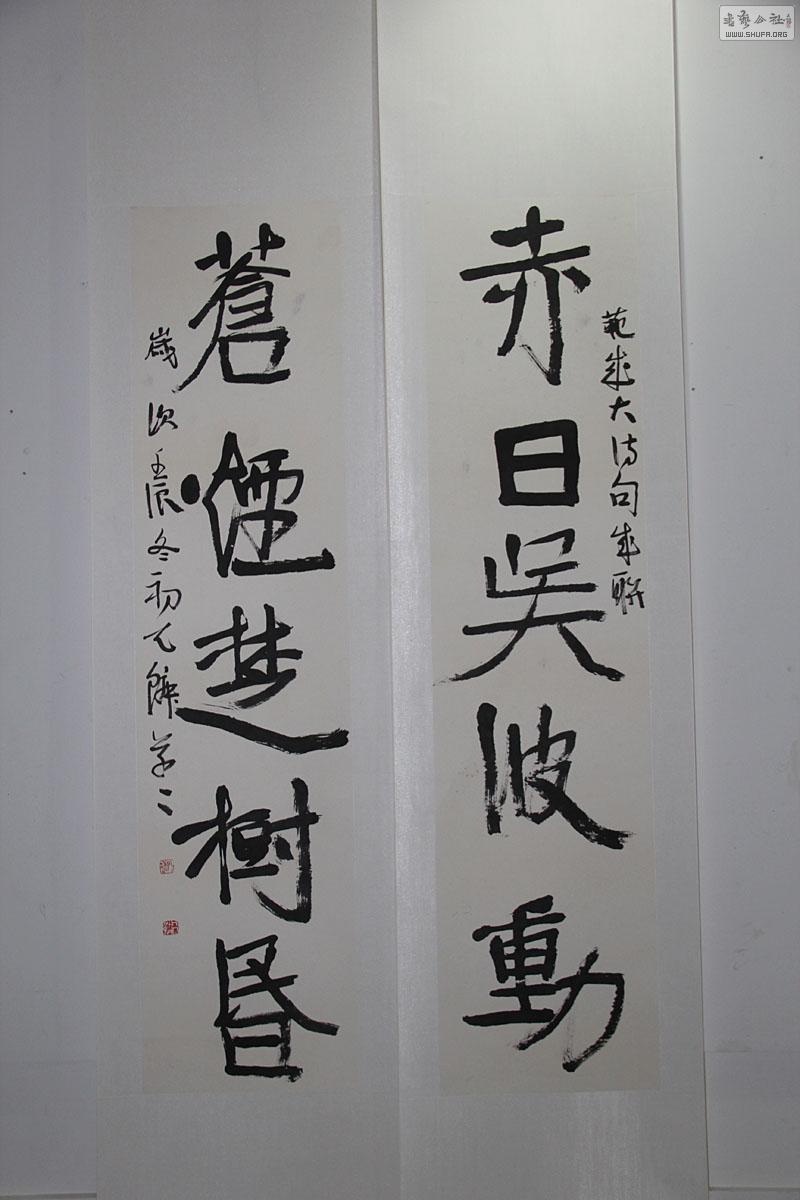 赤日吳波動
範成大詩句成聯
蒼煙楚樹昏
歲次壬辰冬初
書藝公社
WWW.SHUFA.ORG